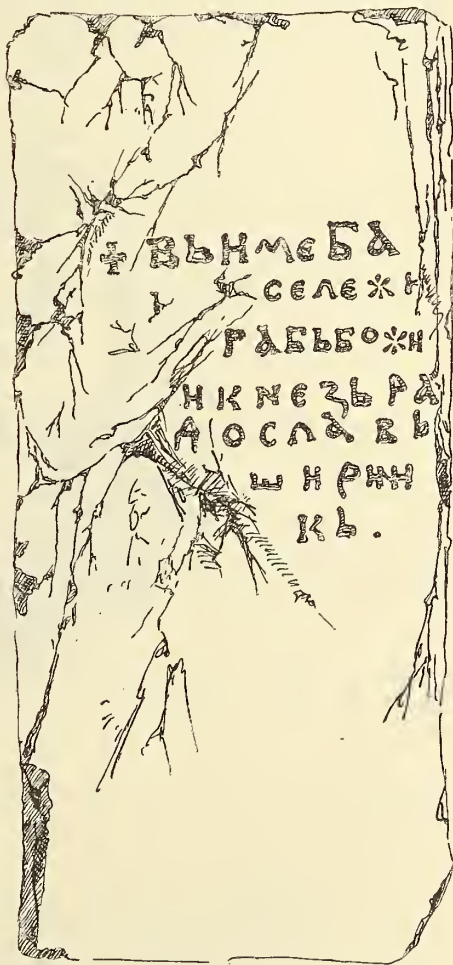 + ВЬНМЕБА
Ь СЕЛЕЖН
РАБЬБОЖН
НКНЕЗЬРА
ДОСЛАВЬ
ШНРНН
КЬ.